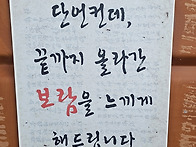 단언컨데,
끝까지 올라간
보람을 느끼게
해드립니다